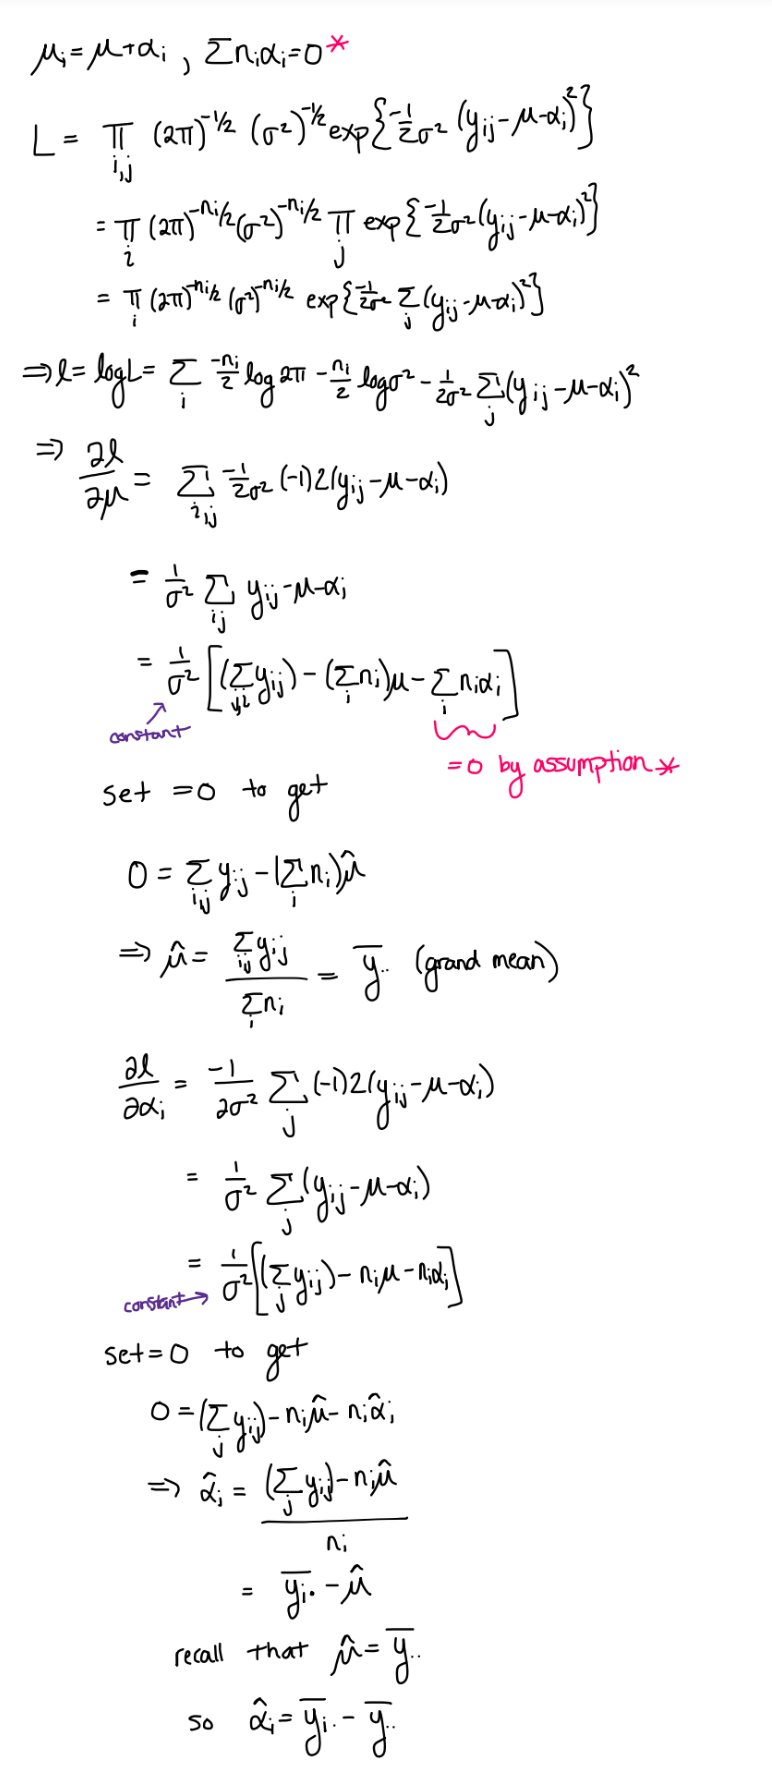 μᵢ = μ+αᵢ , Σnᵢαᵢ=0*
L = Π_{i,j} (2π)^{-1/2} (σ²)^{-1/2} exp{-1/2σ² (y_{ij}-μ-αᵢ)²}
= Π_i (2π)^{-nᵢ/2} (σ²)^{-nᵢ/2} Π_j exp{-1/2σ² (y_{ij}-μ-αᵢ)²}
= Π_i (2π)^{-nᵢ/2} (σ²)^{-nᵢ/2} exp{-1/2σ² Σ_j (y_{ij}-μ-αᵢ)²}
⇒ l = logL = Σ_i -nᵢ/2 log 2π - nᵢ/2 logσ² - 1/2σ² Σ_j (y_{ij}-μ-αᵢ)²
⇒ ∂l/∂μ = Σ_{i,j} -1/2σ² (-1)2(y_{ij}-μ-αᵢ)
= 1/σ² Σ_{ij} y_{ij}-μ-αᵢ
= 1/σ² [(Σ_{i,j} y_{ij}) - (Σ_i nᵢ)μ - Σ_i nᵢαᵢ]
constant
=0 by assumption *
set =0 to get
0 = Σ_{i,j} y_{ij} - (Σ_i nᵢ)μ̂
⇒ μ̂ = Σ_{ij} y_{ij} / Σ_i nᵢ = ȳ.. (grand mean)
∂l/∂αᵢ = -1/2σ² Σ_j (-1)2(y_{ij}-μ-αᵢ)
= 1/σ² Σ_j (y_{ij}-μ-αᵢ)
= 1/σ² [(Σ_j y_{ij}) - nᵢμ - nᵢαᵢ]
constant →
set=0 to get
0 = (Σ_j y_{ij}) - nᵢμ̂ - nᵢα̂ᵢ
⇒ α̂ᵢ = (Σ_j y_{ij}) - nᵢμ̂ / nᵢ
= ȳᵢ. - μ̂
recall that μ̂ = ȳ..
so α̂ᵢ = ȳᵢ. - ȳ..